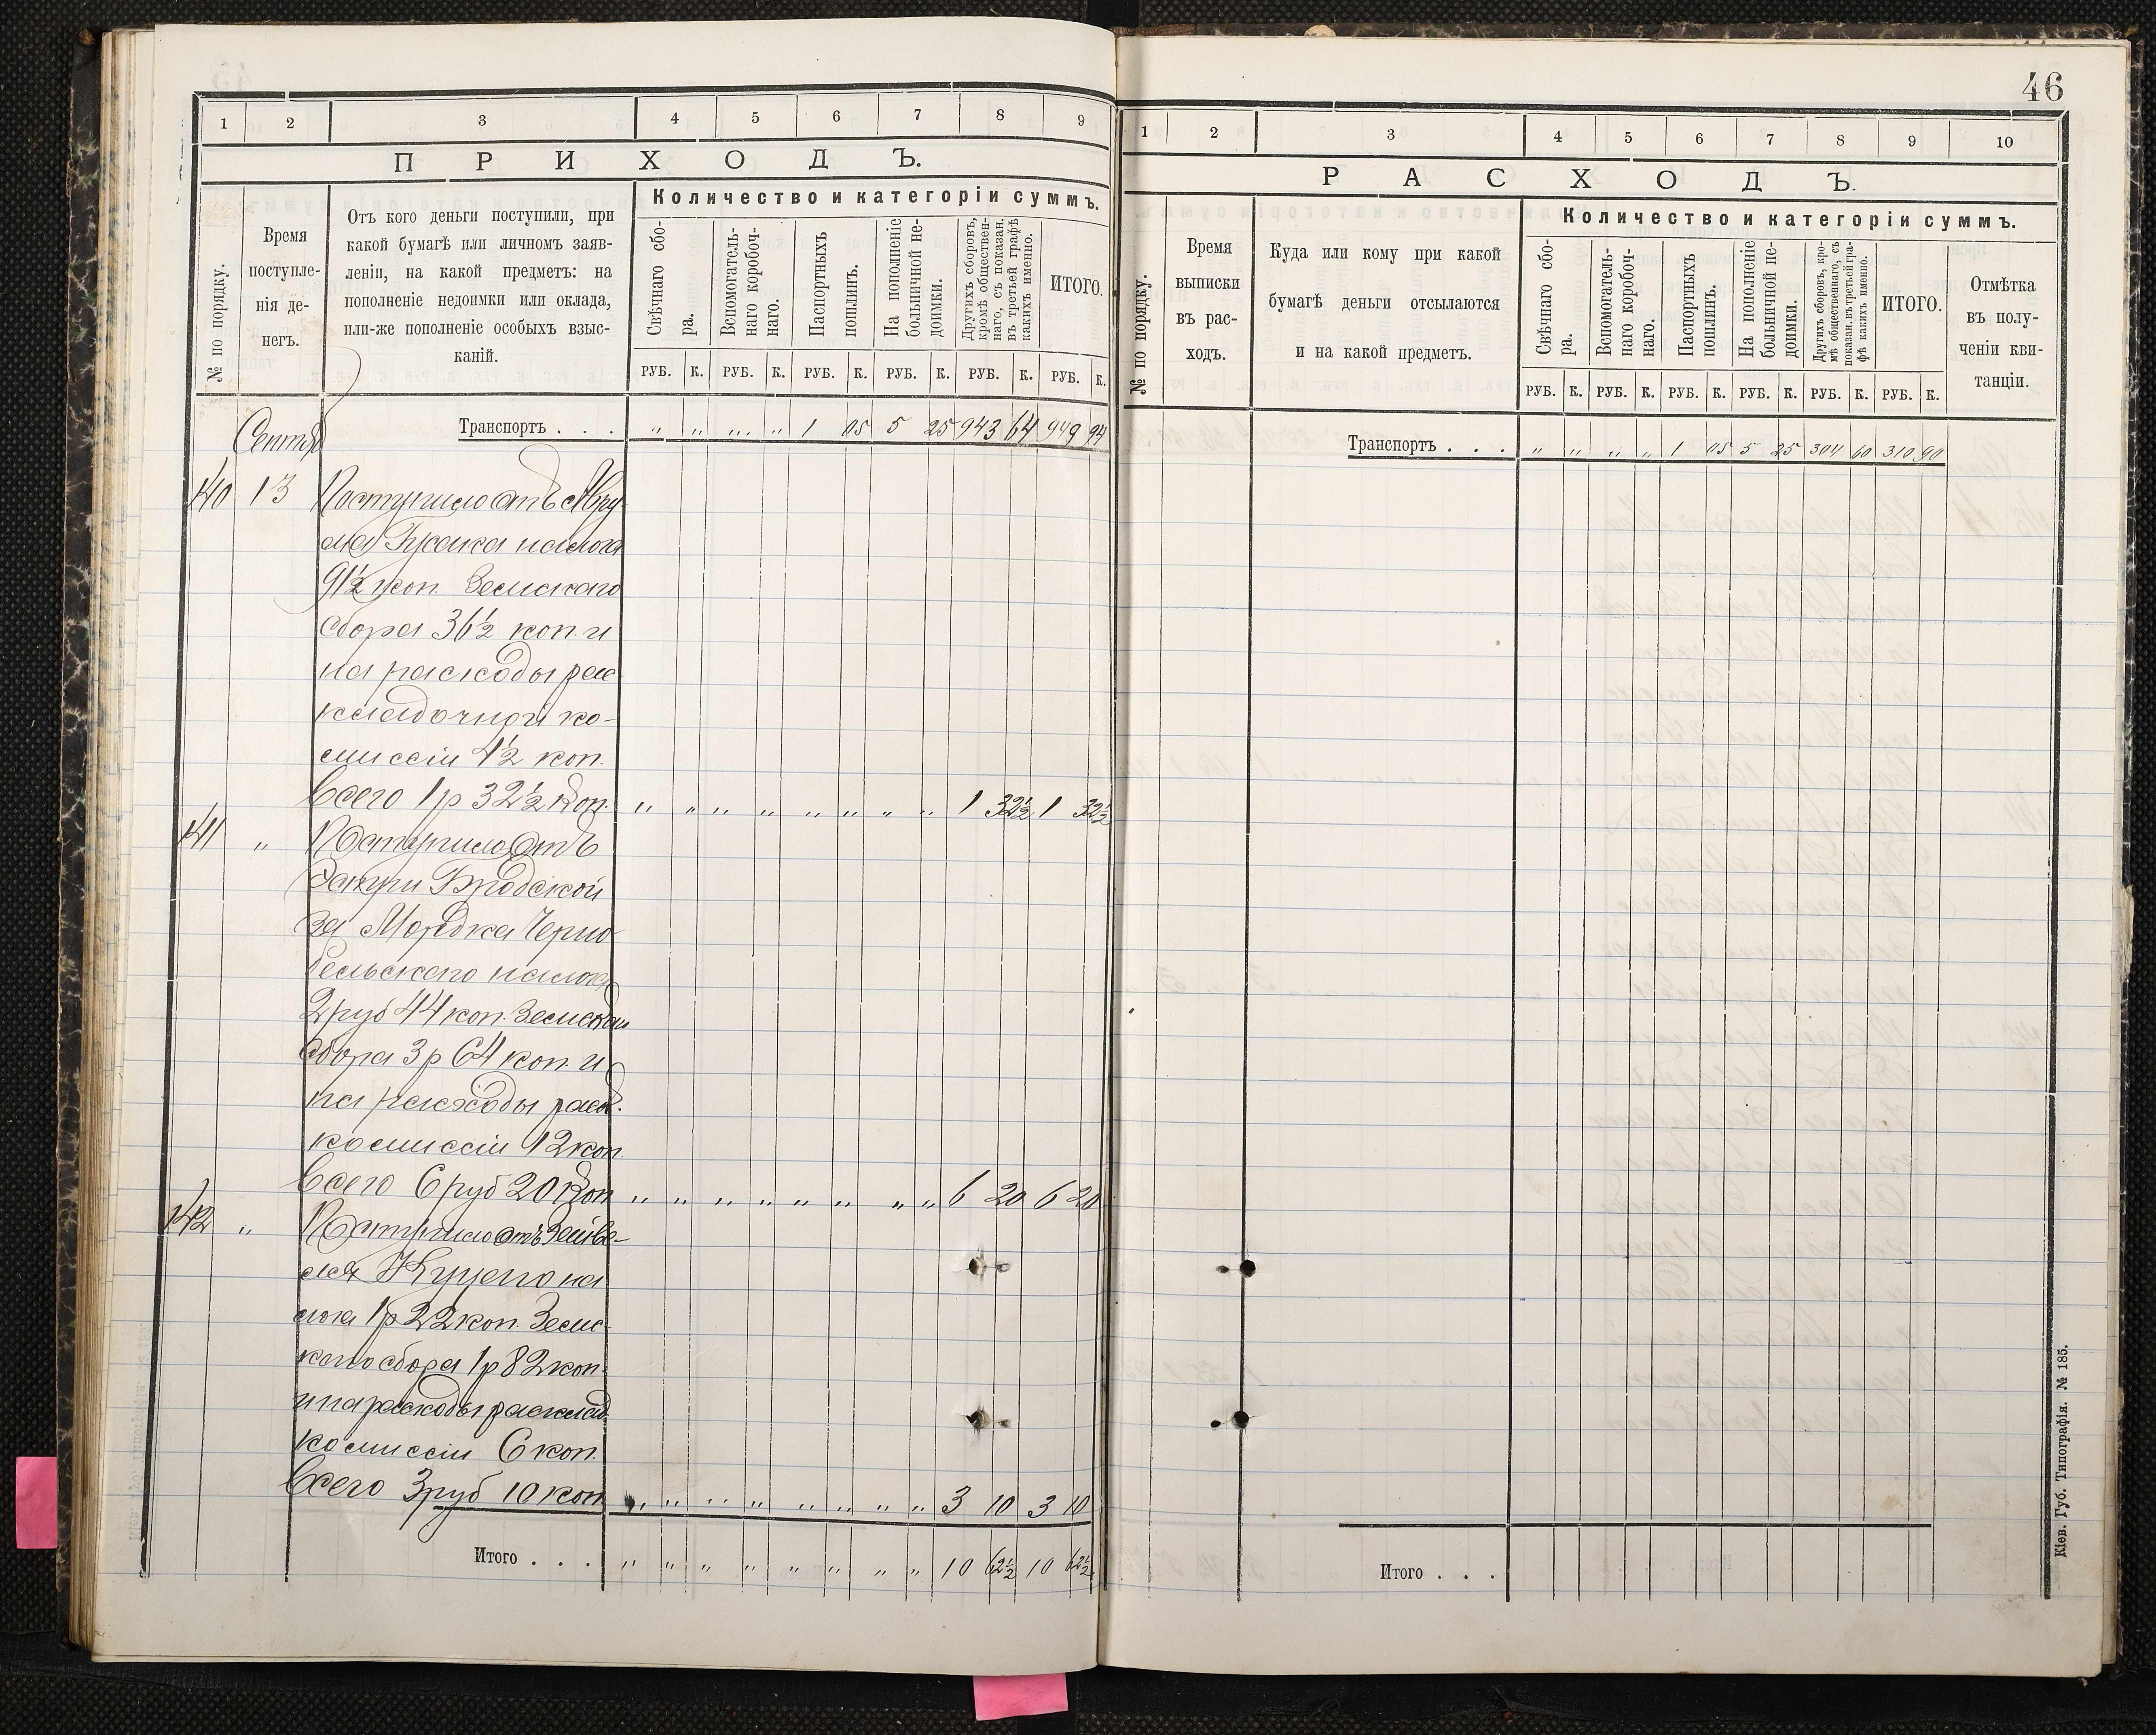 46
1 2 3 4 5 6 7 8 9
ПРИХОДЪ.
№ по порядку.
Время
поступле-
нія де-
негъ.
Отъ кого деньги поступили, при
какой бумагѣ или личномъ заяв-
леніи, на какой предметъ: на
пополненіе недоимки или оклада,
или-же пополненіе особыхъ взыс-
каній.
Количество и категоріи суммъ.
Свѣчнаго сбо-
ра.
Вспомогатель-
наго коробоч-
наго.
Паспортныхъ
пошлинъ.
На пополненіе
больничной не-
доимки.
Другихъ сборовъ,
кромѣ обществен-
наго, съ показан.
въ третьей графѣ
какихъ именно.
ИТОГО.
РУБ. К. РУБ. К. РУБ. К. РУБ. К. РУБ. К. РУБ. К.
Транспортъ . . . „ „ „ „ 1 05 5 25 943 64 949 94
Сентяб
140 13 Поступило отъ Авру
ма налога
91½ коп. Земскаго
сбора 36½ коп. и
на расходы рас
кладочной ко-
миссіи 4½ коп.
Всего 1 р 32½ коп. „ „ „ „ „ „ „ „ 1 32½ 1 32½
141 „ Поступило отъ
Бродской
за Мордка Черно
бельскаго налога
2 руб 44 коп. Земскаго
сбора 3 р 64 коп. и
на расходы раск.
комиссіи 12 коп.
Всего 6 руб 20 коп „ „ „ „ „ „ „ „ 6 20 6 20
142 „ Поступило отъ Зейве-
ля на
лога 1 р 22 коп. Земс-
каго сбора 1 р 82 коп.
и на расходы расклад
комиссіи 6 коп.
Всего 3 руб 10 коп „ „ „ „ „ „ „ „ 3 10 3 10
Итого . . . „ „ „ „ „ „ „ „ 10 62½ 10 62½
1 2 3 4 5 6 7 8 9 10
РАСХОДЪ.
№ по порядку.
Время
выписки
въ рас-
ходъ.
Куда или кому при какой
бумагѣ деньги отсылаются
и на какой предметъ.
Количество и категоріи суммъ.
Свѣчнаго сбо-
ра.
Вспомогатель-
наго коробоч-
наго.
Паспортныхъ
пошлинъ.
На пополненіе
больничной не-
доимки.
Другихъ сборовъ, кро-
мѣ общественнаго, съ
показан. въ третьей гра-
фѣ какихъ именно.
ИТОГО.
Отмѣтка
въ полу-
ченіи кви-
танціи.
РУБ. К. РУБ. К. РУБ. К. РУБ. К. РУБ. К. РУБ. К.
Транспортъ . . . „ „ „ „ 1 05 5 25 304 60 310 90
Итого . . .
Кіев. Губ. Типографія. № 185.